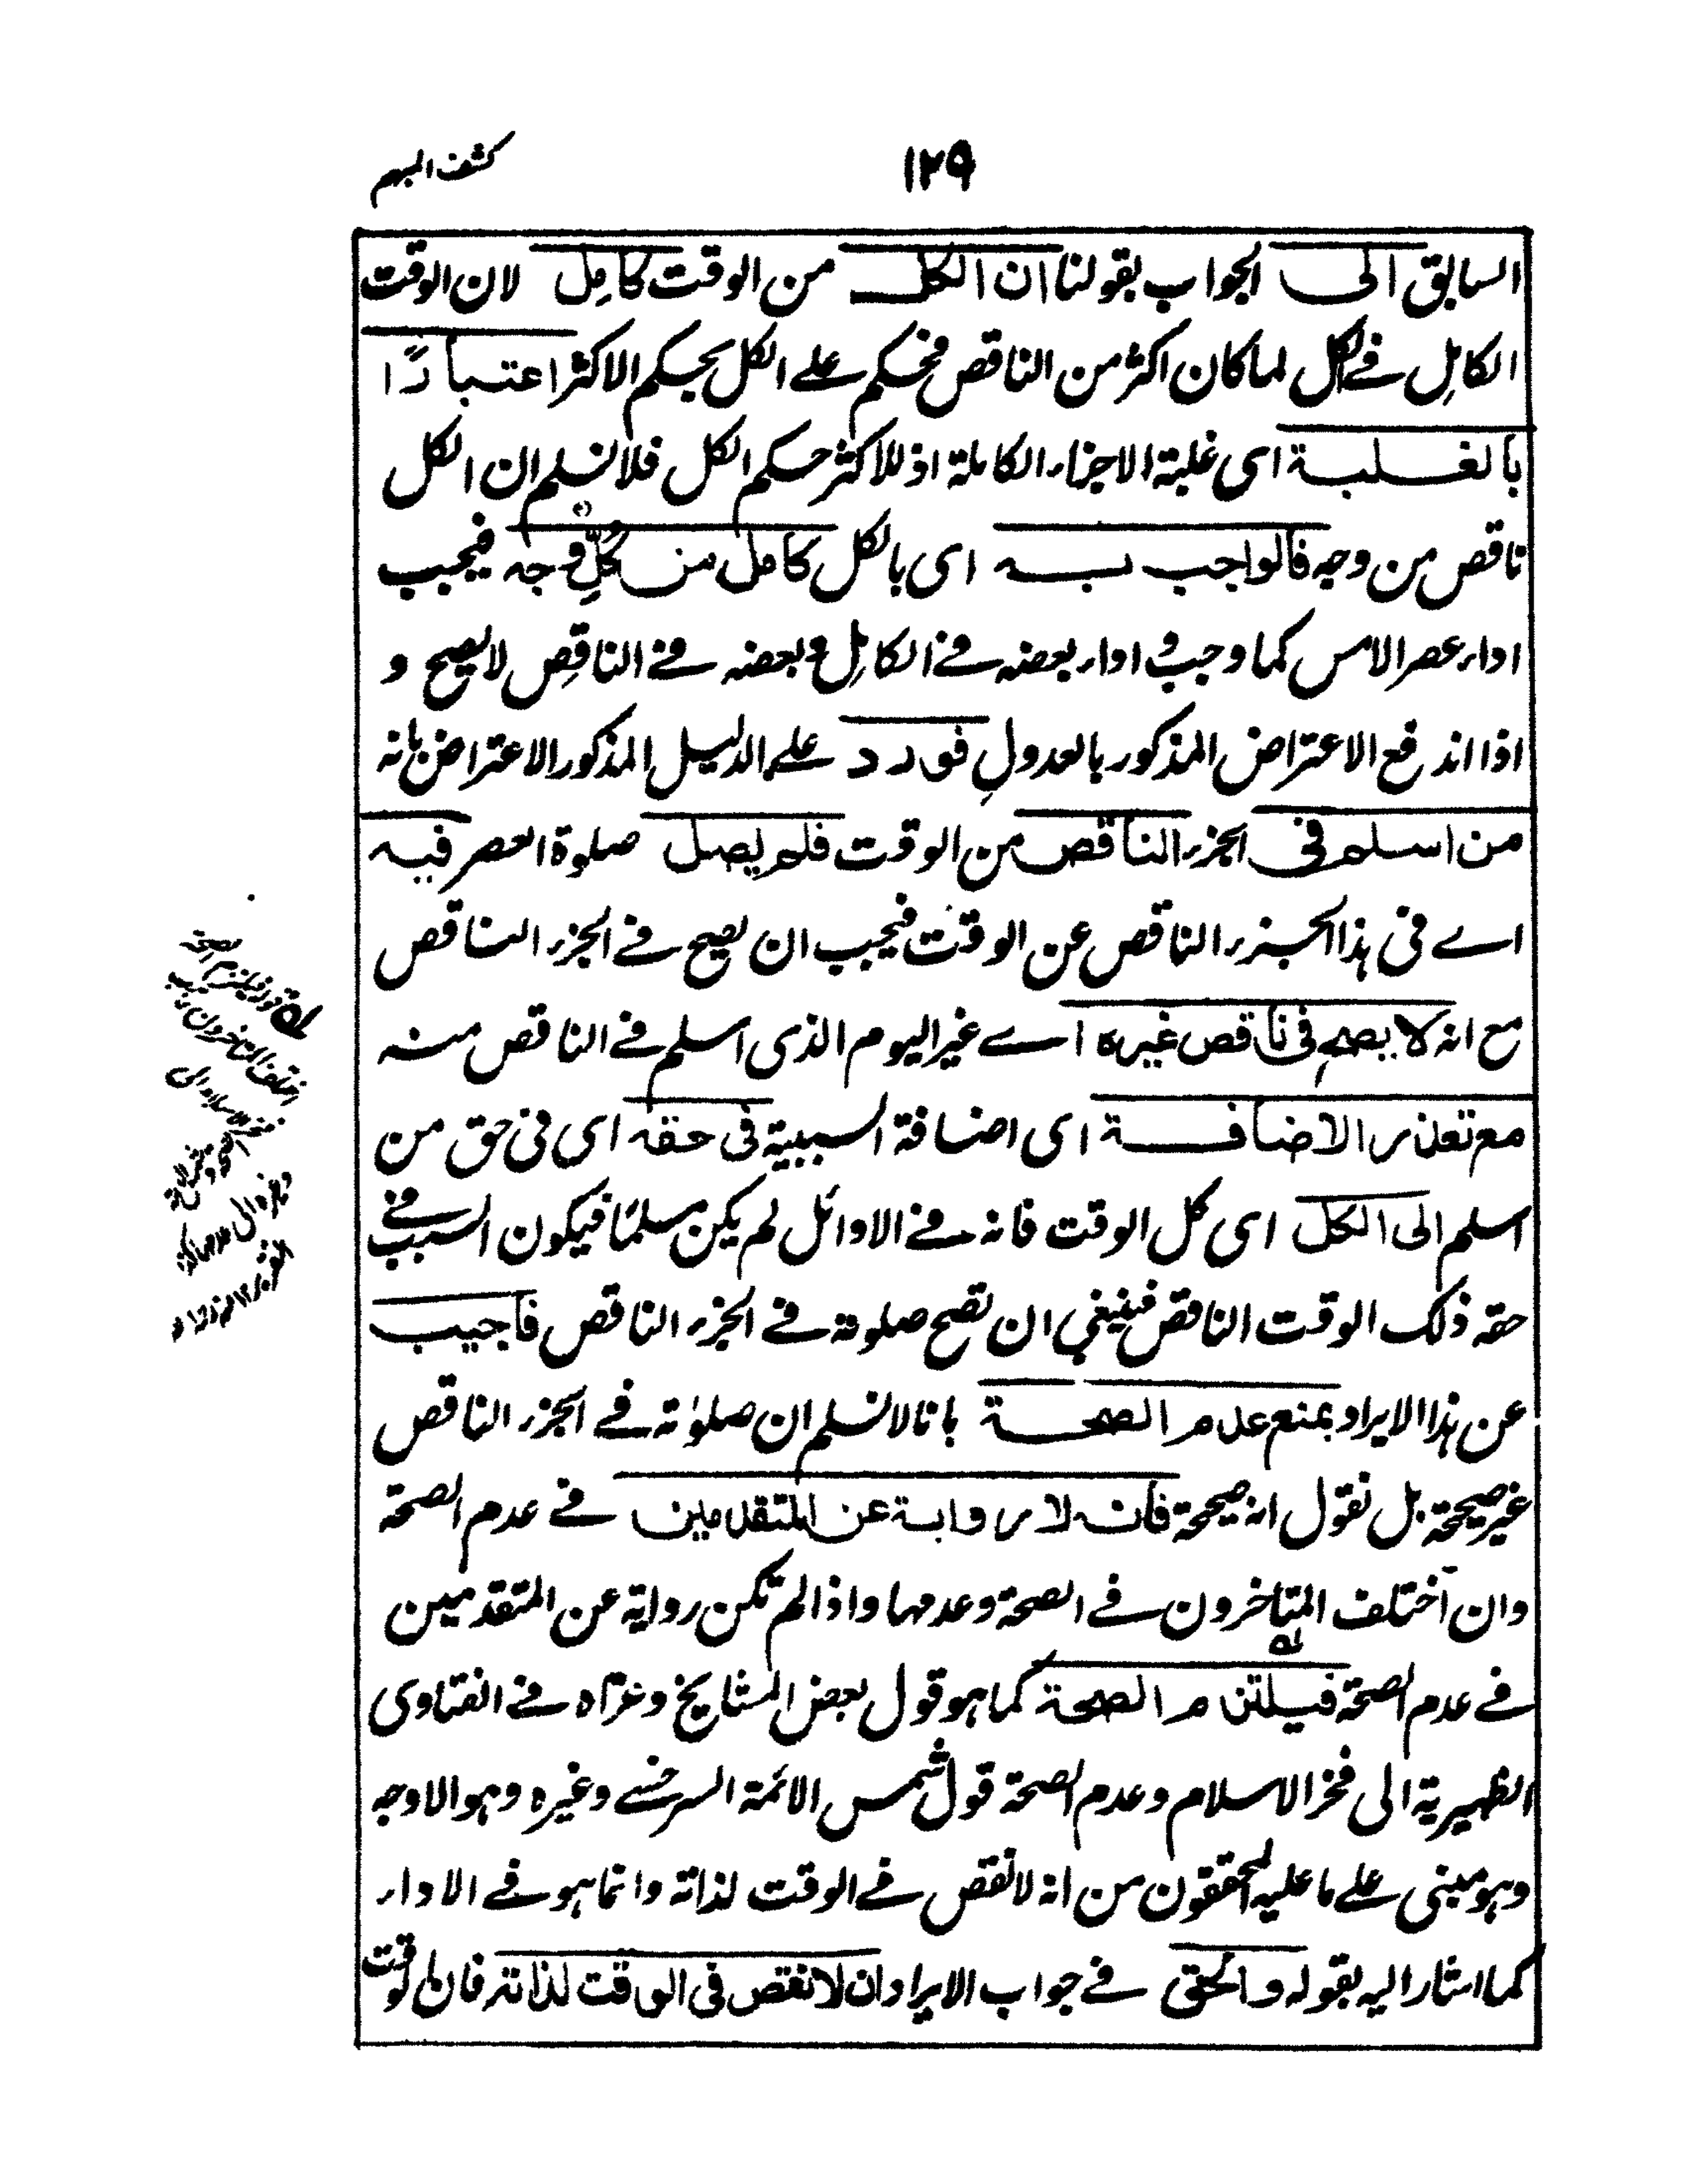 كشف المبهم
١٢٩
السابق الى الجواب بقولنا ان الكل من الوقت كامل لان الوقت
الكامل في الكل لما كان اكثر من الناقص فحكم على الكل بحكم الاكثر اعتبارًا
بالغلبة اى غلبة الاجزاء الكاملة اذ للاكثر حكم الكل فلا نسلم ان الكل
ناقص من وجه فالواجب به اى بالكل كامل من كُلِّ وجه فيجب
اداء عصر الامس كما وجب و اداء بعضه في الكامل و بعضه في الناقص لا يصح و
اذا اندفع الاعتراض المذكور بالعدول فورد على الدليل المذكور الاعتراض بانه
من اسلم فى الجزء الناقص من الوقت فلم يصل صلوة العصر فيه
اے فى هذا الجزء الناقص عن الوقت فيجب ان يصح في الجزء الناقص
مع انه لا يصح فى ناقص غيره اے غير اليوم الذى اسلم في الناقص منه
مع تعذر الاضافة اى اضافة السببية فى حقه اى فى حق من
اسلم الى الكل اى كل الوقت فانه في الاوائل لم يكن مسلمًا فيكون السبب في
حقه ذلك الوقت الناقص فينبغي ان تصح صلوته في الجزء الناقص فاجيب
عن هذا الايراد بمنع عدم الصحة بانا لا نسلم ان صلوٰته في الجزء الناقص
غير صحيحة بل نقول انه صحيحة فانه لا رواية عن المتقدمين في عدم الصحة
وان اختلف المتاخرون في الصحة وعدمها واذا لم تكن رواية عن المتقدمين
في عدم الصحة فيلتزم الصحة كما هو قول بعض المشايخ وعزاه في الفتاوى
الظهيرية الى فخر الاسلام وعدم الصحة قول شمس الائمة السرخسي وغيره وهو الاوجه
وهو مبنى على ما عليه المحققون من انه لا نقص في الوقت لذاته وانما هو في الاداء
كما اشار اليه بقوله والحق في جواب الايراد ان لا نقص فى الوقت لذاته فان الوقت
له قوله فيلتزم الصحة
اختلف المتاخرون